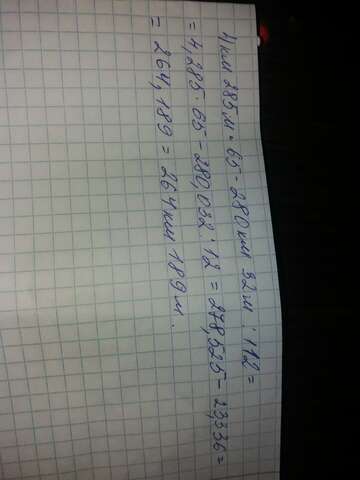 4 км 285 м · 65 - 280 км 32 м : 112 =
= 4,285 · 65 - 280,032 : 12 = 278,525 - 23,336 =
= 264,189 = 264 км 189 м.